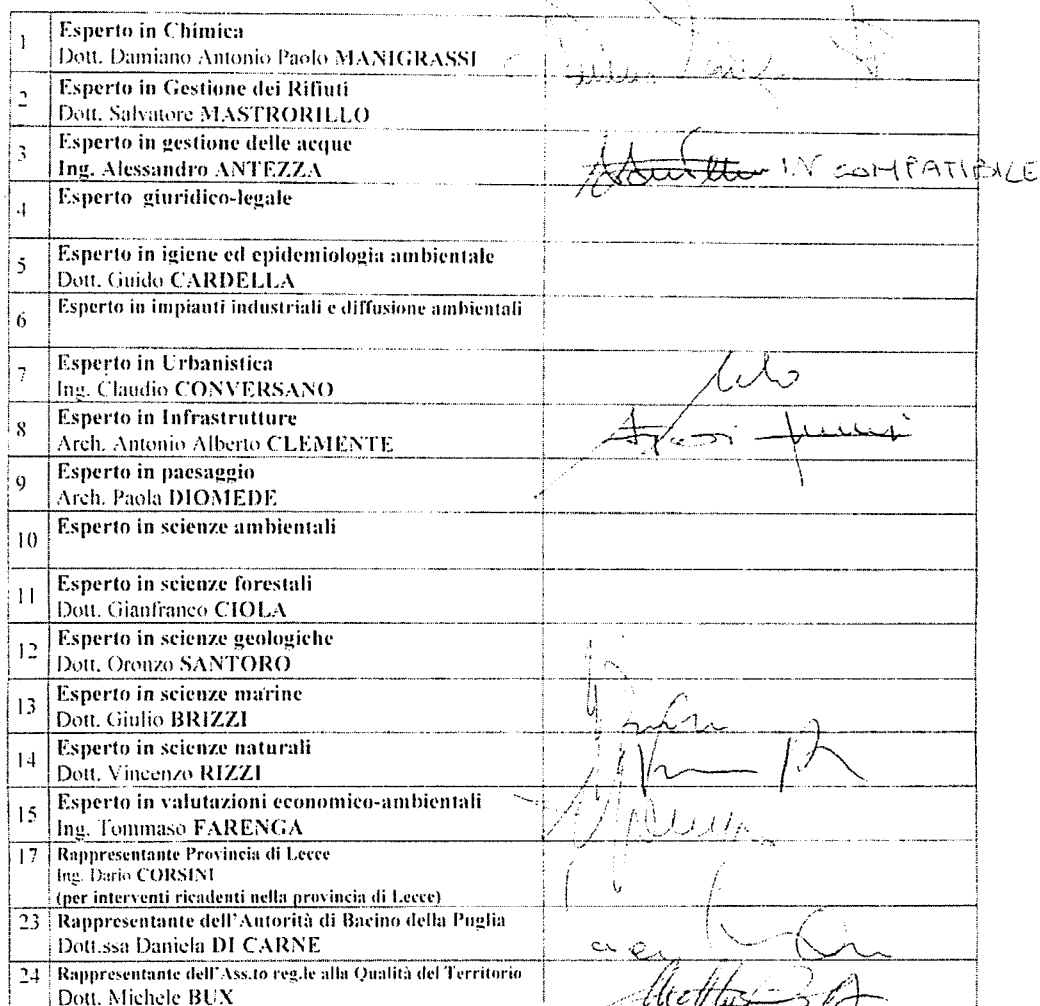 1 Esperto in Chimica
Dott. Damiano Antonio Paolo MANIGRASSI
2 Esperto in Gestione dei Rifiuti
Dott. Salvatore MASTRORILLO
3 Esperto in gestione delle acque
Ing. Alessandro ANTEZZA
INCOMPATIBILE
4 Esperto giuridico-legale
5 Esperto in igiene ed epidemiologia ambientale
Dott. Guido CARDELLA
6 Esperto in impianti industriali e diffusione ambientali
7 Esperto in Urbanistica
Ing. Claudio CONVERSANO
8 Esperto in Infrastrutture
Arch. Antonio Alberto CLEMENTE
9 Esperto in paesaggio
Arch. Paola DIOMEDE
10 Esperto in scienze ambientali
11 Esperto in scienze forestali
Dott. Gianfranco CIOLA
12 Esperto in scienze geologiche
Dott. Oronzo SANTORO
13 Esperto in scienze marine
Dott. Giulio BRIZZI
14 Esperto in scienze naturali
Dott. Vincenzo RIZZI
15 Esperto in valutazioni economico-ambientali
Ing. Tommaso FARENGA
17 Rappresentante Provincia di Lecce
Ing. Dario CORSINI
(per interventi ricadenti nella provincia di Lecce)
23 Rappresentante dell'Autorità di Bacino della Puglia
Dott.ssa Daniela DI CARNE
24 Rappresentante dell'Ass.to reg.le alla Qualità del Territorio
Dott. Michele BUX